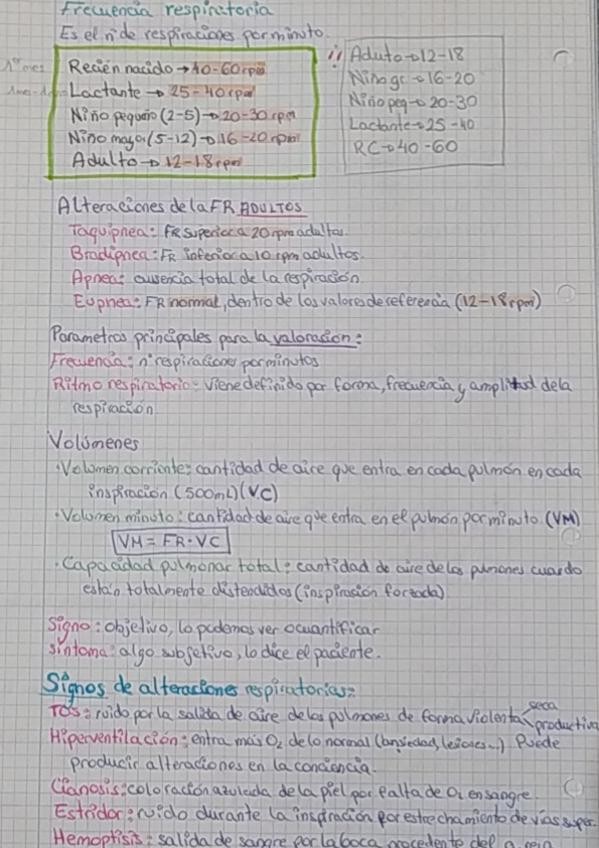 Frecuencia respiratoria
Es el nº de respiraciones por minuto.
1º mes Recién nacido → 40-60 rpm
1mes-1año Lactante → 25-40 rpm
Niño pequeño (2-5) → 20-30 rpm
Niño mayor (5-12) → 16-20 rpm
Adulto → 12-18 rpm
!! Aduto → 12-18
Niño gr → 16-20
Niño peq → 20-30
Lactante → 25-40
RC → 40-60
Alteraciones de la FR ADULTOS
Taquipnea: FR superior a 20 rpm adultos.
Bradipnea: FR inferior a 10 rpm adultos.
Apnea: ausencia total de la respiración
Eupnea: FR normal, dentro de los valores de referencia (12-18 rpm)
Parametros principales para la valoración:
Frecuencia: nº respiraciones por minutos
Ritmo respiratorio: viene definido por forma, frecuencia y amplitud de la
respiración.
Volúmenes
· Volumen corriente: cantidad de aire que entra en cada pulmón en cada
inspiración (500mL) (VC)
· Volumen minuto: cantidad de aire que entra en el pulmón por minuto (VM)
VM = FR · VC
· Capacidad pulmonar total: cantidad de aire de los pulmones cuando
están totalmente distendidos (inspiración forzada)
Signo: objetivo, lo podemos ver o cuantificar
síntoma: algo subjetivo, lo dice el paciente.
Signos de alteraciones respiratorias:
TOS: ruido por la salida de aire de los pulmones de forma violenta seca productiva
Hiperventilación: entra más O2 de lo normal (ansiedad, lesiones..) Puede
producir alteraciones en la conciencia.
Cianosis: coloración azulada de la piel por falta de O2 en sangre.
Estridor: ruido durante la inspiración por estrechamiento de vías super.
Hemoptisis: salida de sangre por la boca procedente del